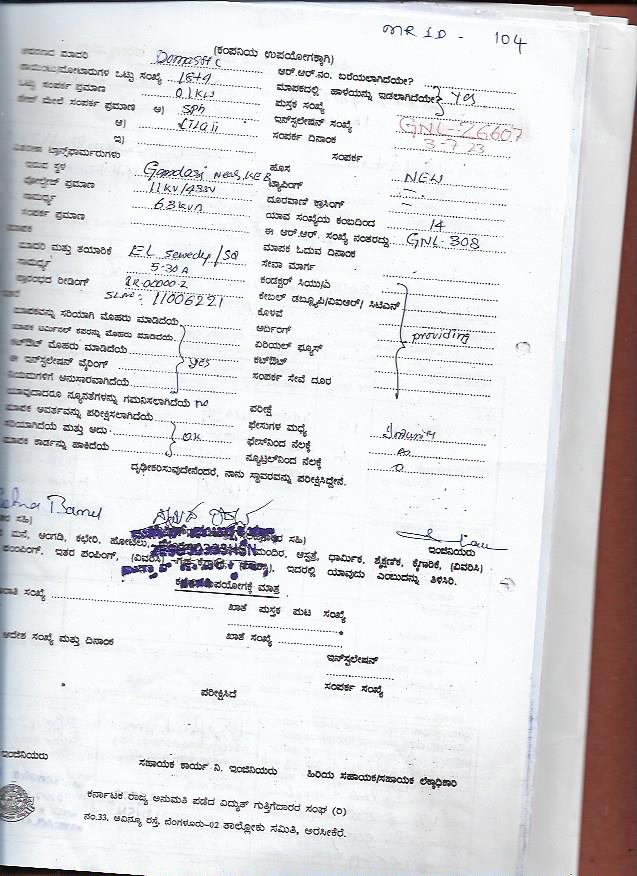 MR ID - 104
(ಕಂಪನಿಯ ಉಪಯೋಗಕ್ಕಾಗಿ)
ಮಾದರಿ Domastic ಆರ್.ಆರ್.ನಂ. ಬರೆಯಲಾಗಿದೆಯೇ?
ಒಟ್ಟು ಸಂಖ್ಯೆ ಮಾಪಕದಲ್ಲಿ ಹಾಳೆಯನ್ನು ಇಡಲಾಗಿದೆಯೇ? Yes
ಒಟ್ಟು ಸಂಪರ್ಕ ಪ್ರಮಾಣ 01KW ಪುಸ್ತಕ ಸಂಖ್ಯೆ
ಮೇಲೆ ಸಂಪರ್ಕ ಪ್ರಮಾಣ ಅ) SPh ಇನ್‌ಸ್ಟಲೇಷನ್ ಸಂಖ್ಯೆ GNL-26607
ಆ) ಸಂಪರ್ಕ ದಿನಾಂಕ 3-7-23
ಇ) ಸಂಪರ್ಕ
ಟ್ರಾನ್ಸ್‌ಫಾರ್ಮರುಗಳು ಹೊಸ NEW
ಇರುವ ಸ್ಥಳ Gandasi Near KEB ಟ್ಯಾಪಿಂಗ್ -
ವೋಲ್ಟೇಜ್ ಪ್ರಮಾಣ 11KV/433V ದೂರವಾಣಿ ಕ್ರಾಸಿಂಗ್ -
ಸಾಮರ್ಥ್ಯ 63KVA ಯಾವ ಸಂಖ್ಯೆಯ ಕಂಬದಿಂದ 14
ಸಂಪರ್ಕ ಪ್ರಮಾಣ ಈ ಆರ್.ಆರ್. ಸಂಖ್ಯೆ ನಂತರದ್ದು GNL-308
ಮಾಪಕ ಮಾಪಕ ಓದುವ ದಿನಾಂಕ
ಮಾದರಿ ಮತ್ತು ತಯಾರಿಕೆ EL Sewedy/SQ ಸೇವಾ ಮಾರ್ಗ
ಸಾಮರ್ಥ್ಯ 5-30A ಕಂಡಕ್ಟರ್ ಸಿಯು/ಎ
ಪ್ರಾರಂಭದ ರೀಡಿಂಗ್ ಕೇಬಲ್ ಡಬ್ಲ್ಯೂಪಿ/ವಿಐಆರ್/ ಸಿಟಿಎಸ್
SLNo: 11006221 ಕೊಳವೆ
ಮಾಪಕವನ್ನು ಸರಿಯಾಗಿ ಮೊಹರು ಮಾಡಿದೆಯೆ ಅರ್ಥಿಂಗ್ providing
ಮಾಪಕ ಟರ್ಮಿನಲ್ ಕವರನ್ನು ಮೊಹರು ಮಾಡಿದೆಯೆ ಏರಿಯಲ್ ಫ್ಯೂಸ್
ಕಟ್‌ಔಟ್ ಮೊಹರು ಮಾಡಿದೆಯೆ ಕಟ್‌ಔಟ್
ಈ ಇನ್‌ಸ್ಟಲೇಷನ್ ವೈರಿಂಗ್ Yes ಸಂಪರ್ಕ ಸೇವೆ ದೂರ
ನಿಯಮಗಳಿಗೆ ಅನುಸಾರವಾಗಿದೆಯೆ
ಯಾವುದಾದರೂ ನ್ಯೂನತೆಗಳನ್ನು ಗಮನಿಸಲಾಗಿದೆಯೆ no ಪರೀಕ್ಷೆ
ಮಾಪಕ ಆವರ್ತವನ್ನು ಪರೀಕ್ಷಿಸಲಾಗಿದೆಯೆ ಫೇಸುಗಳ ಮಧ್ಯೆ
ಸರಿಯಾಗಿದೆಯೆ ಮತ್ತು ಅದು OK ಫೇಸ್‌ನಿಂದ ನೆಲಕ್ಕೆ
ಮಾಪಕ ಕಾರ್ಡನ್ನು ಹಾಕಿದೆಯೆ ನ್ಯೂಟ್ರಲ್‌ನಿಂದ ನೆಲಕ್ಕೆ
ದೃಢೀಕರಿಸುವುದೇನೆಂದರೆ, ನಾನು ಸ್ಥಾವರವನ್ನು ಪರೀಕ್ಷಿಸಿದ್ದೇನೆ.
ಸಹಿ) ಸಹಿ) ಇಂಜಿನಿಯರು
ಮನೆ, ಅಂಗಡಿ, ಕಛೇರಿ, ಹೋಟೆಲು, ಮಂದಿರ, ಆಸ್ಪತ್ರೆ, ಧಾರ್ಮಿಕ, ಶೈಕ್ಷಣಿಕ, ಕೈಗಾರಿಕೆ, (ವಿವರಿಸಿ)
ಪಂಪಿಂಗ್, ಇತರ ಪಂಪಿಂಗ್, (ವಿವರಿಸಿ) ಇದರಲ್ಲಿ ಯಾವುದು ಎಂಬುದನ್ನು ತಿಳಿಸಿರಿ.
ಉಪಯೋಗಕ್ಕೆ ಮಾತ್ರ
ಸಂಖ್ಯೆ ಖಾತೆ ಪುಸ್ತಕ ಪುಟ ಸಂಖ್ಯೆ
ಆದೇಶ ಸಂಖ್ಯೆ ಮತ್ತು ದಿನಾಂಕ ಖಾತೆ ಸಂಖ್ಯೆ
ಇನ್‌ಸ್ಟಲೇಷನ್
ಸಂಪರ್ಕ ಸಂಖ್ಯೆ
ಪರೀಕ್ಷಿಸಿದೆ
ಇಂಜಿನಿಯರು ಸಹಾಯಕ ಕಾರ್ಯ ನಿ. ಇಂಜಿನಿಯರು ಹಿರಿಯ ಸಹಾಯಕ/ಸಹಾಯಕ ಲೆಕ್ಕಾಧಿಕಾರಿ
ಕರ್ನಾಟಕ ರಾಜ್ಯ ಅನುಮತಿ ಪಡೆದ ವಿದ್ಯುತ್ ಗುತ್ತಿಗೆದಾರರ ಸಂಘ (ರಿ)
ನಂ.33, ಅವಿನ್ಯೂ ರಸ್ತೆ, ಬೆಂಗಳೂರು-02 ತಾಲ್ಲೋಕು ಸಮಿತಿ, ಅರಸೀಕೆರೆ.